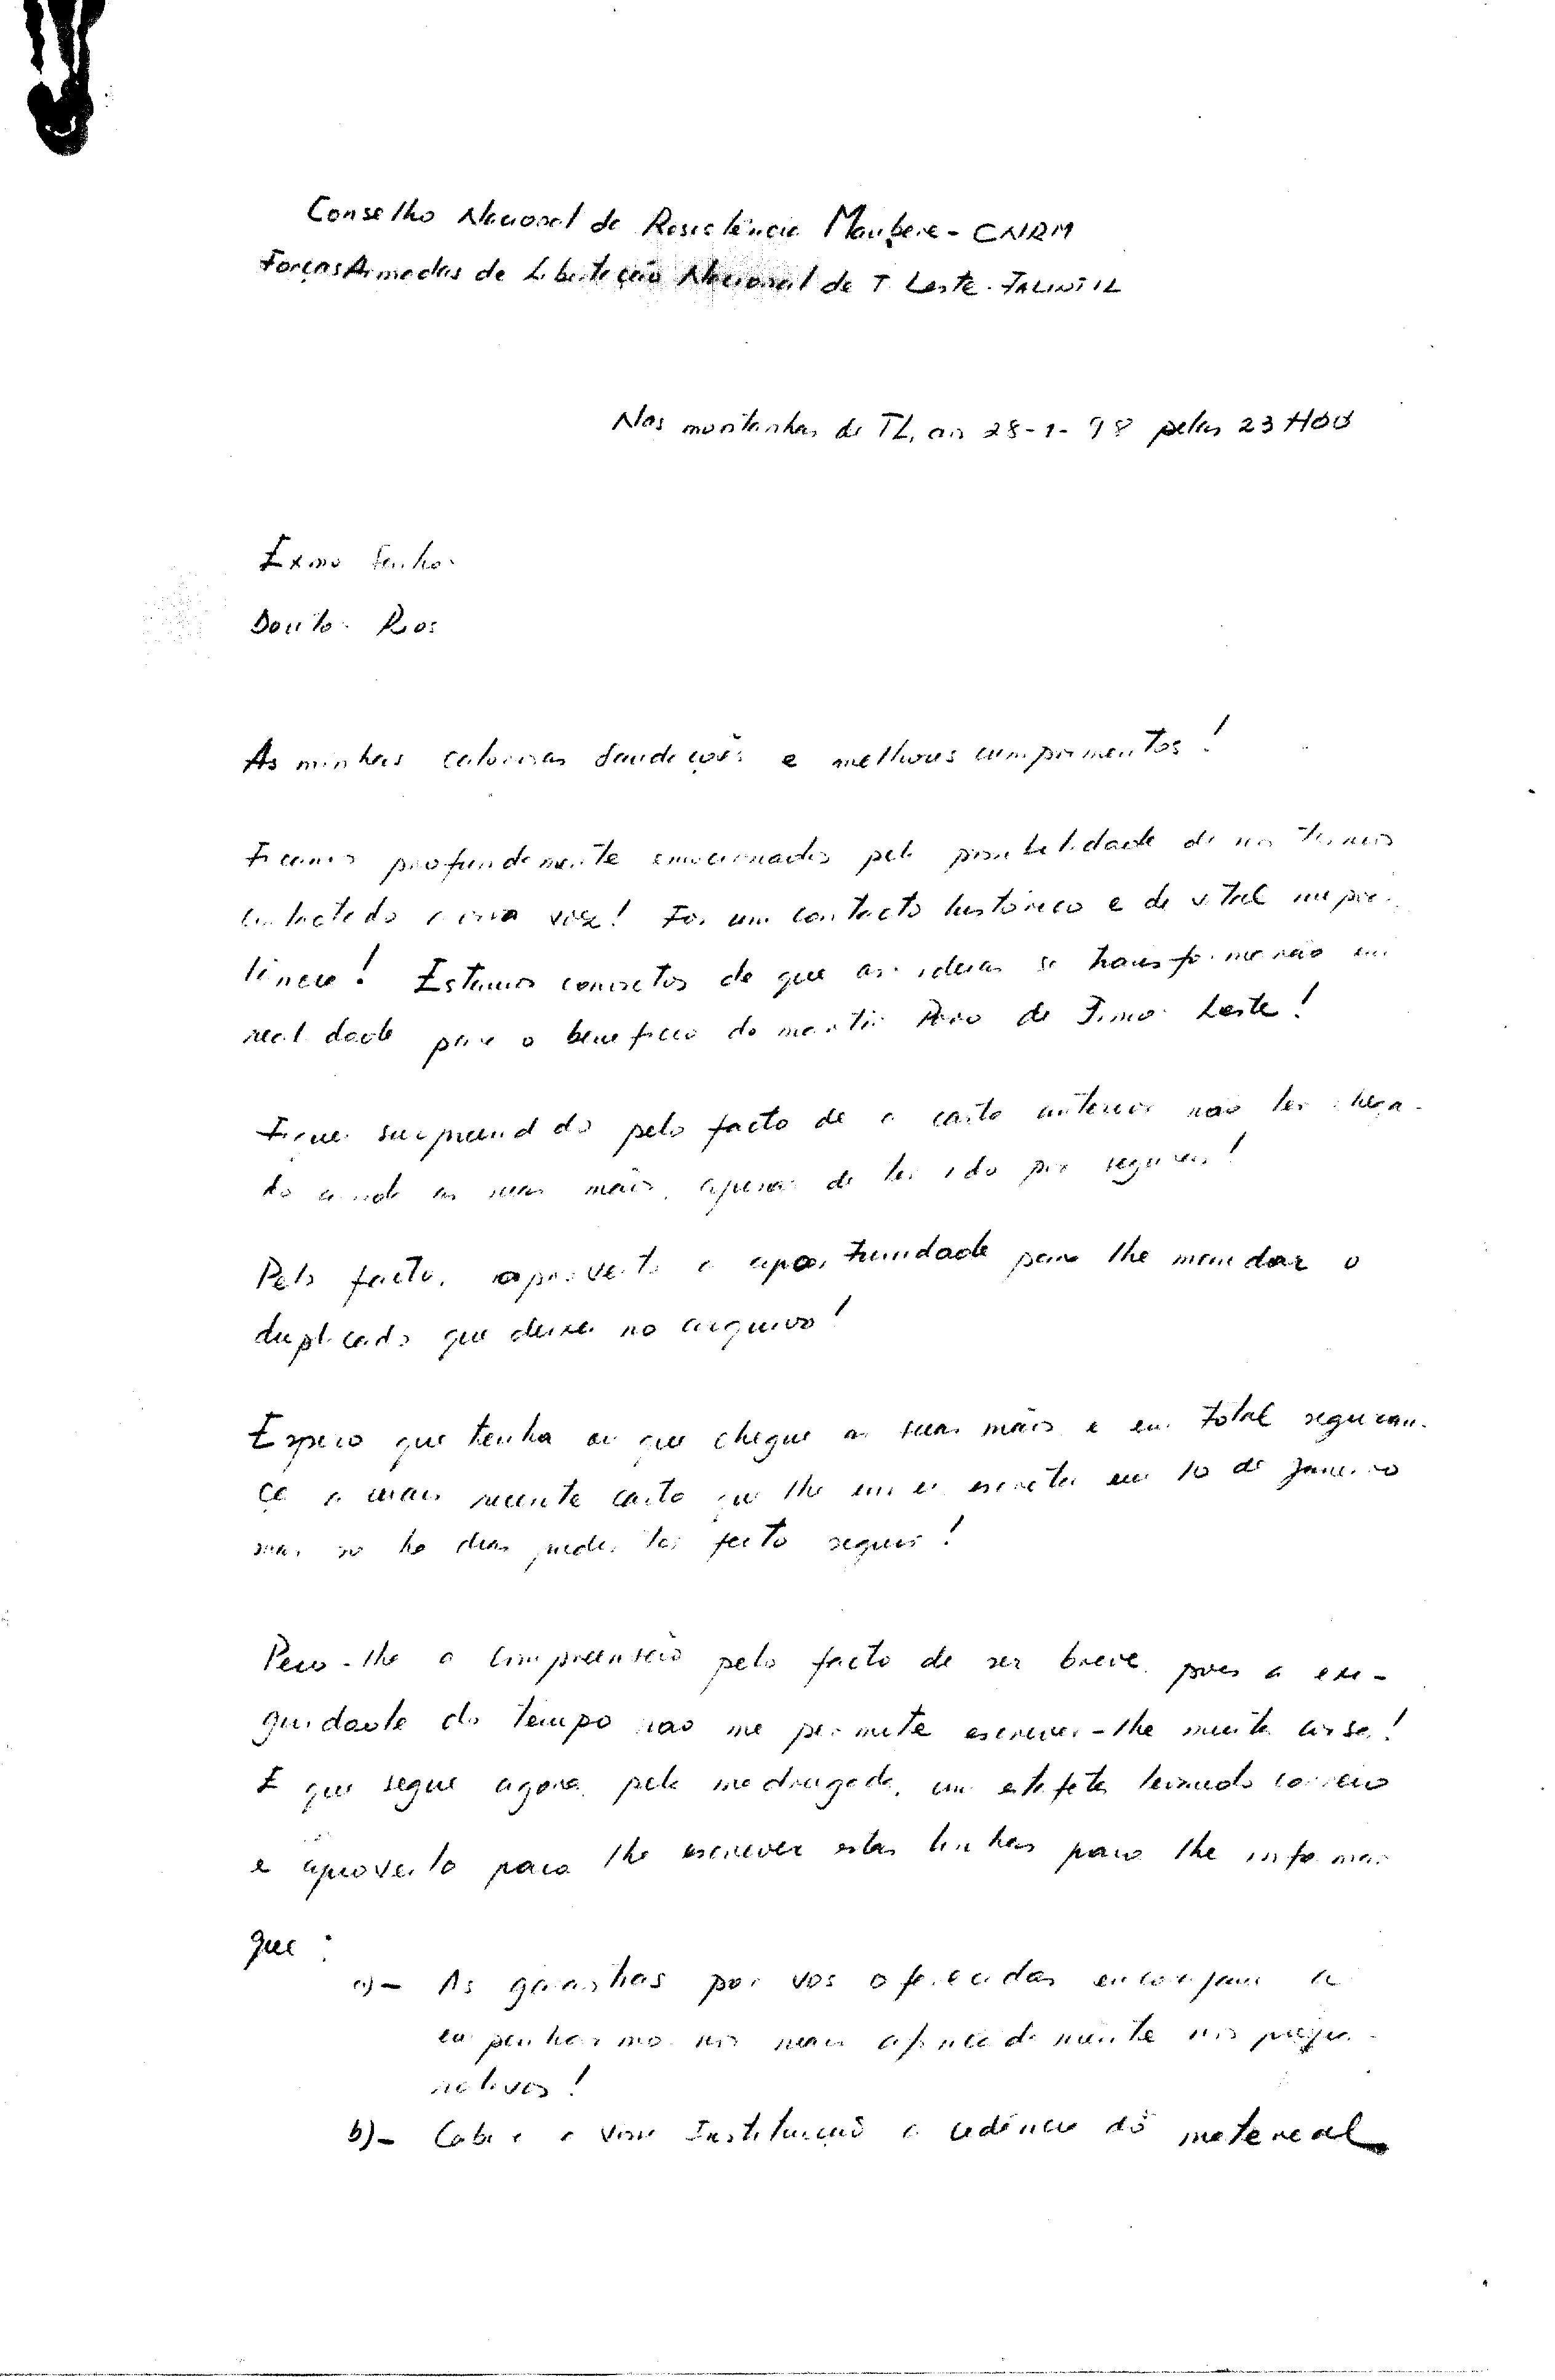 Conselho Nacional de Resistência Maubere - CNRM
Forças Armadas de Libertação Nacional de T. Leste - FALINTIL
Nas montanhas de TL, aos 28-1-98 pelas 23H00
Exmo Senhor
Doutor Rios
As minhas calorosas saudações e melhores cumprimentos!
Ficamos profundamente emocionados pela possibilidade de nos termos
contactado viva voz! Foi um contacto histórico e de vital impor-
tância! Estamos convictos de que as ideias se transformarão em
realidade para o benefício do martir Povo de Timor Leste!
Fiquei surpreendido pelo facto de a carta anterior não ter chega-
do ainda as suas mãos, apesar de ter ido por seguros!
Pelo facto, aproveito a oportunidade para lhe mandar o
duplicado que deixei no arquivo!
Espero que tenha ou que chegue as suas mãos e em total seguran-
ça a mais recente carta que lhe enviei escrita em 10 de Janeiro
mas só há dias pude ter feito seguir!
Peço-lhe a compreensão pelo facto de ser breve, pois a exi-
guidade do tempo não me permite escrever-lhe muita coisa!
É que segue agora, pela madrugada, um estafeta levando correio
e aproveito para lhe escrever estas linhas para lhe informar
que:
a)- As garantias por vos oferecidas encorajam a
empenharmo-nos mais afincadamente nos prepa-
rativos!
b)- Cabe a vossa Instituição a cedência do material